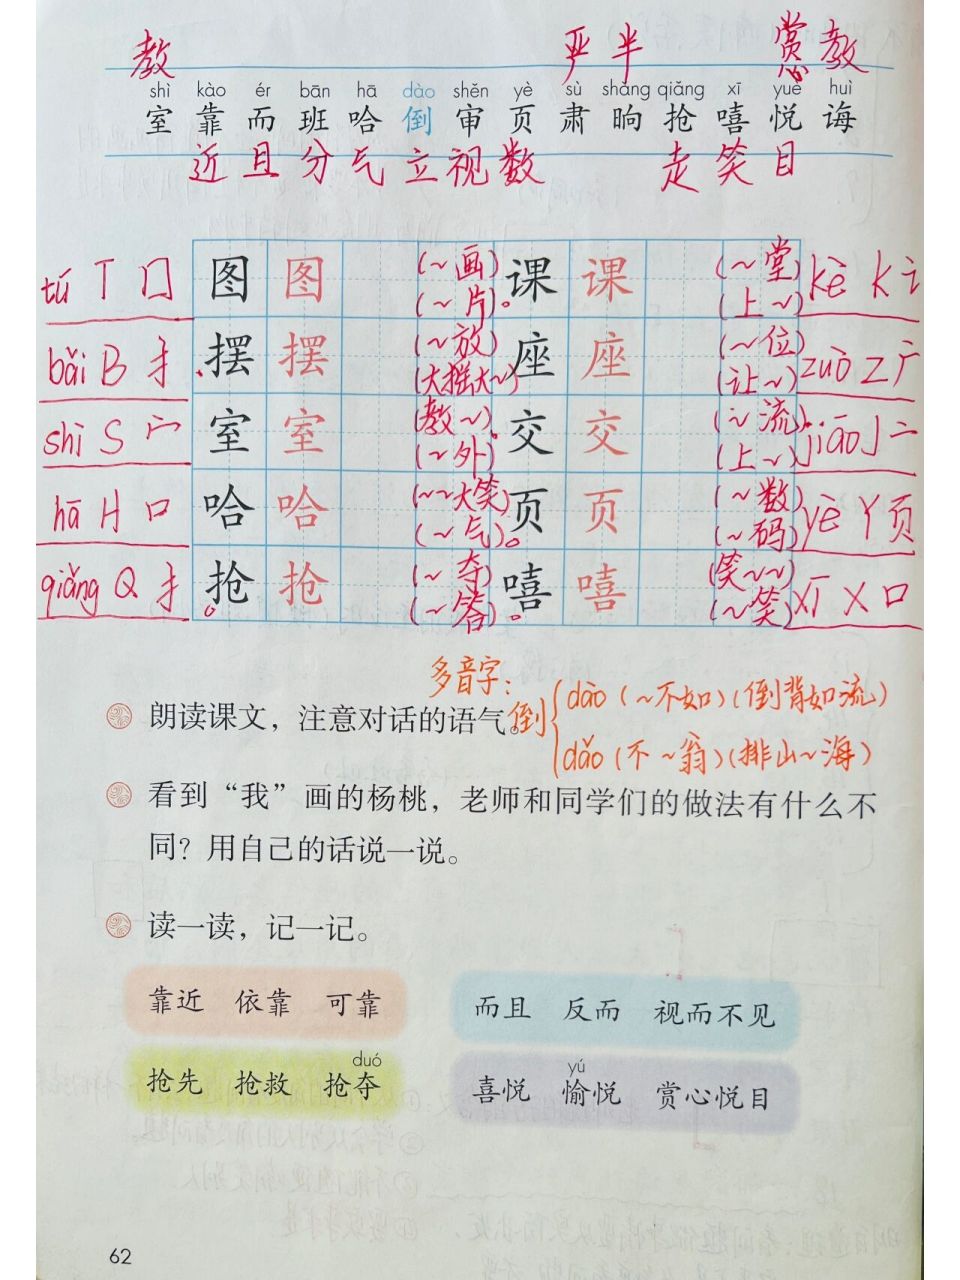 教 严 半 赏心 教
shì kào ér bān hā dào shěn yè sù shǎng qiǎng xī yuè huì
室 靠 而 班 哈 倒 审 页 肃 晌 抢 嘻 悦 诲
近 且 分 气 立 视 数 走 笑 目
tú T 囗 图 图 (~画) (~片)。 课 课 (~堂) (上~) kè K 讠
bǎi B 扌 摆 摆 (~放) (大摇大~) 座 座 (~位) (让~) zuò Z 广
shì S 宀 室 室 (教~) (~外) 交 交 (~流) (上~) jiāo J 亠
hā H 口 哈 哈 (~~大笑) (~气)。 页 页 (~数) (~码) yè Y 页
qiǎng Q 扌 抢 抢 (~夺) (~答)。 嘻 嘻 (笑~~) (~笑) xī X 口
多音字：
朗读课文，注意对话的语气。倒 dào (~不如) (倒背如流)
dǎo (不~翁) (排山~海)
看到“我”画的杨桃，老师和同学们的做法有什么不
同？用自己的话说一说。
读一读，记一记。
靠近 依靠 可靠 而且 反而 视而不见
duó yú
抢先 抢救 抢夺 喜悦 愉悦 赏心悦目
62